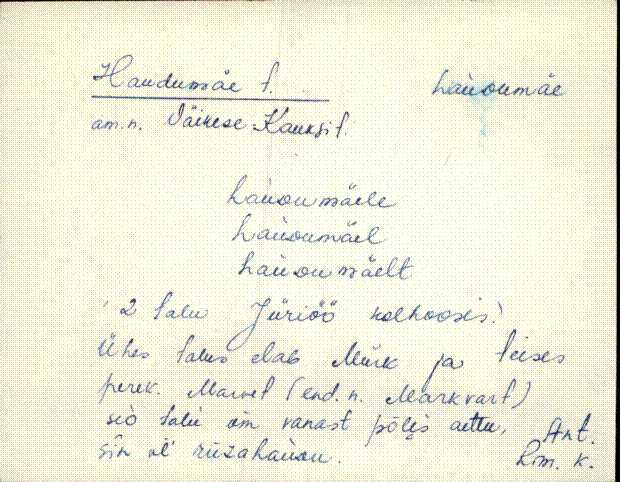 Haudumäe t. hau̬umäe
am.n. Väikese-Kauksi t.
hau̬umäele
hau̬umäel
hau̬umäelt
2 talu Jüriöö kolhoosis.
Ühes talus elab Mürk ja teises
perek. Marvet (end. n. Markvart)
siò talu om vanast põlis Ant.
sin ol' Rm. k.